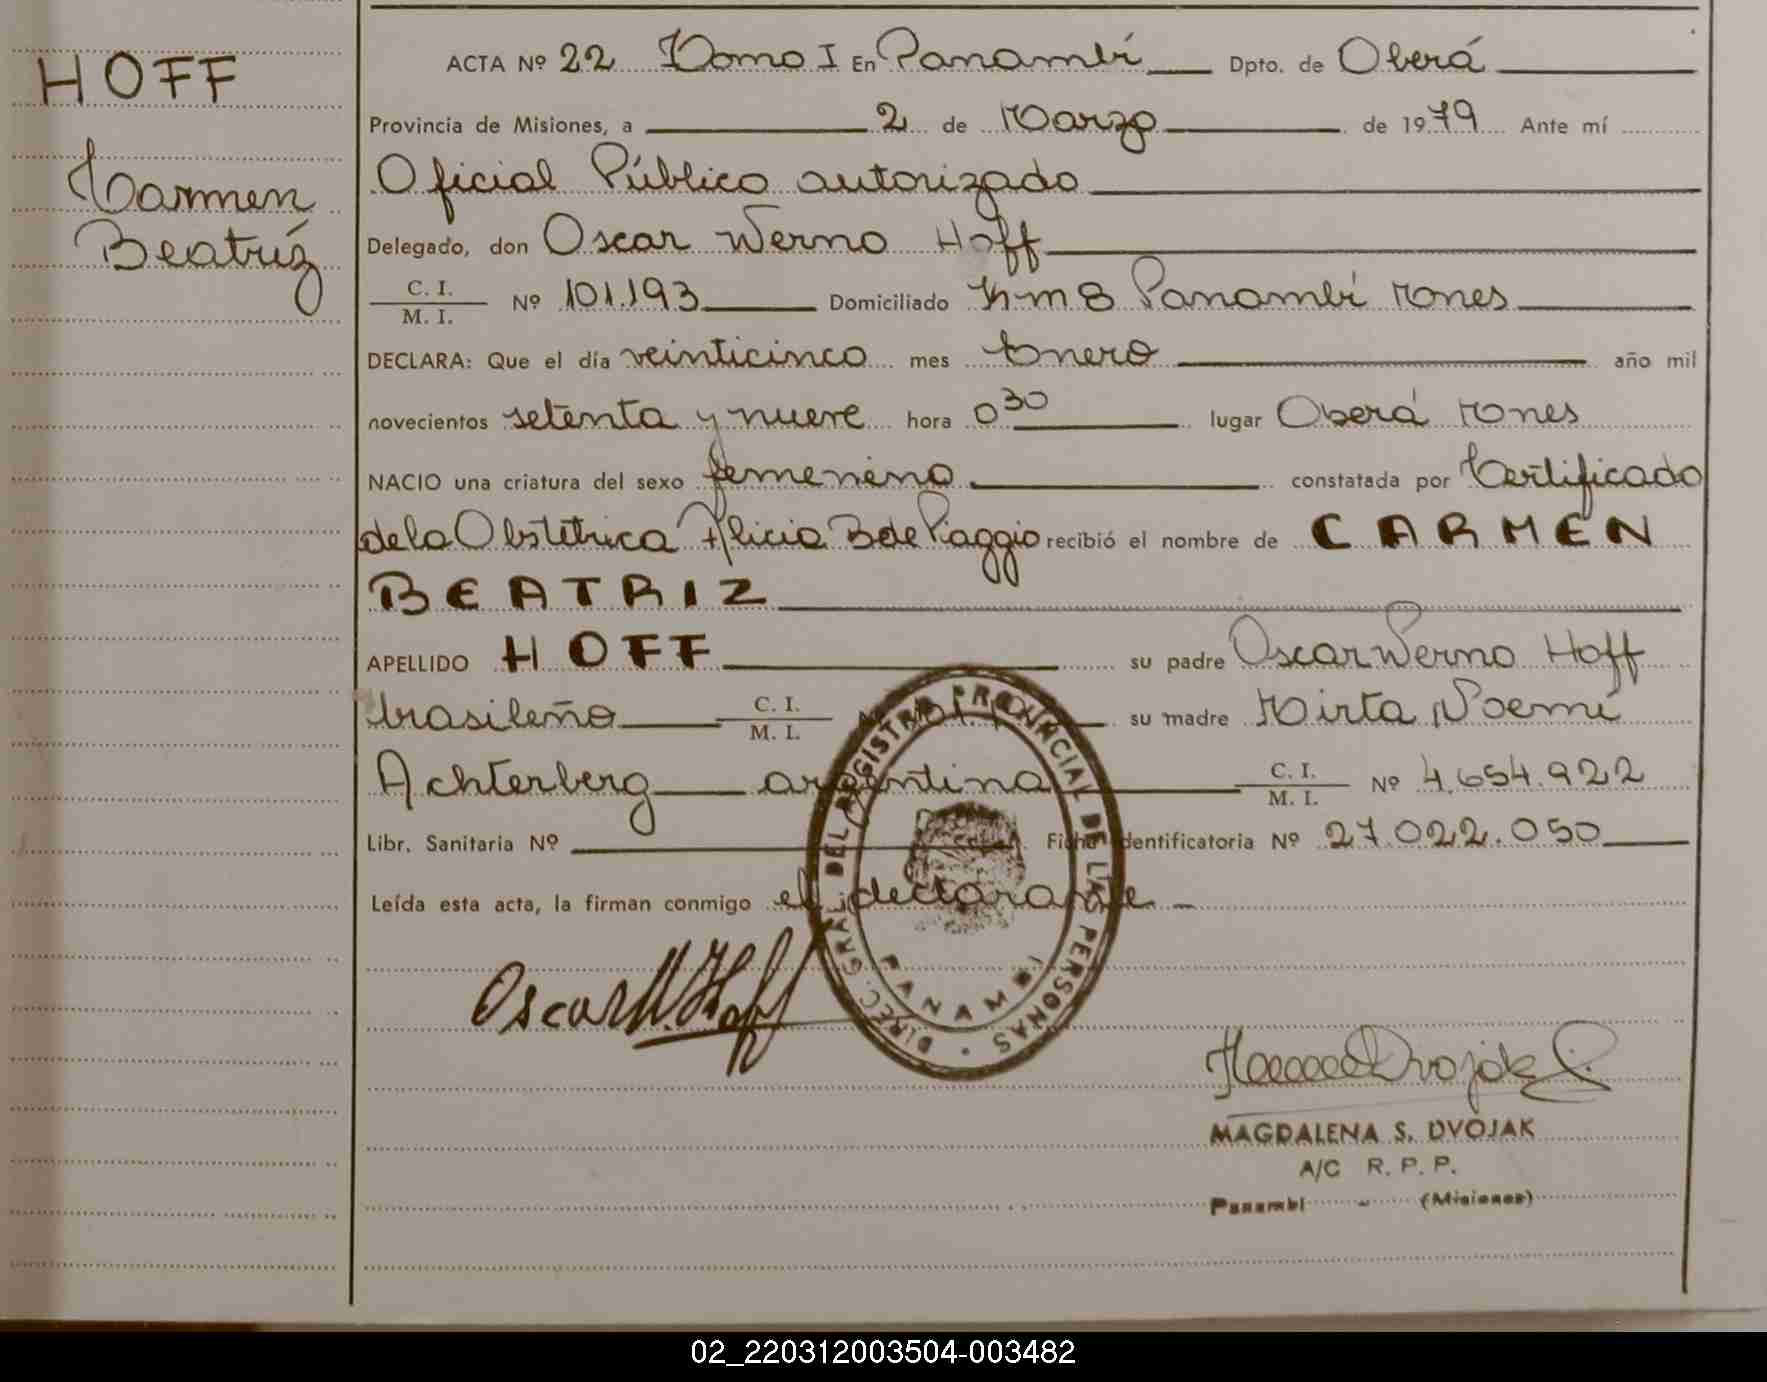 HOFF
Carmen
Beatríz
ACTA Nº 22 Tomo I En Panambí Dpto. de Oberá
Provincia de Misiones, a 2 de Marzo de 1979 Ante mí
Oficial Público autorizado
Delegado, don Oscar Werno Hoff
C. I.
M. I. Nº 101.193 Domiciliado Km 8 Panambí Mones
DECLARA: Que el día veinticinco mes Enero año mil
novecientos setenta y nueve hora 0 30 lugar Oberá Mones
NACIO una criatura del sexo femenino constatada por Certificado
de la Obstétrica Alicia B de Piaggio recibió el nombre de CARMEN
BEATRIZ
APELLIDO HOFF su padre Oscar Werno Hoff
brasileño C. I.
M. I. su madre Mirta Noemí
Achterberg argentina C. I.
M. I. Nº 4.654.922
Libr. Sanitaria Nº Ficha Identificatoria Nº 27.022.050
Leída esta acta, la firman conmigo el declarante
DIREC. GRAL. DEL REGISTRO PROVINCIAL DE LAS PERSONAS
PANAMBI
Oscar W. Hoff
MAGDALENA S. DVOJAK
A/C R. P. P.
Panambí - (Misiones)
02_220312003504-003482